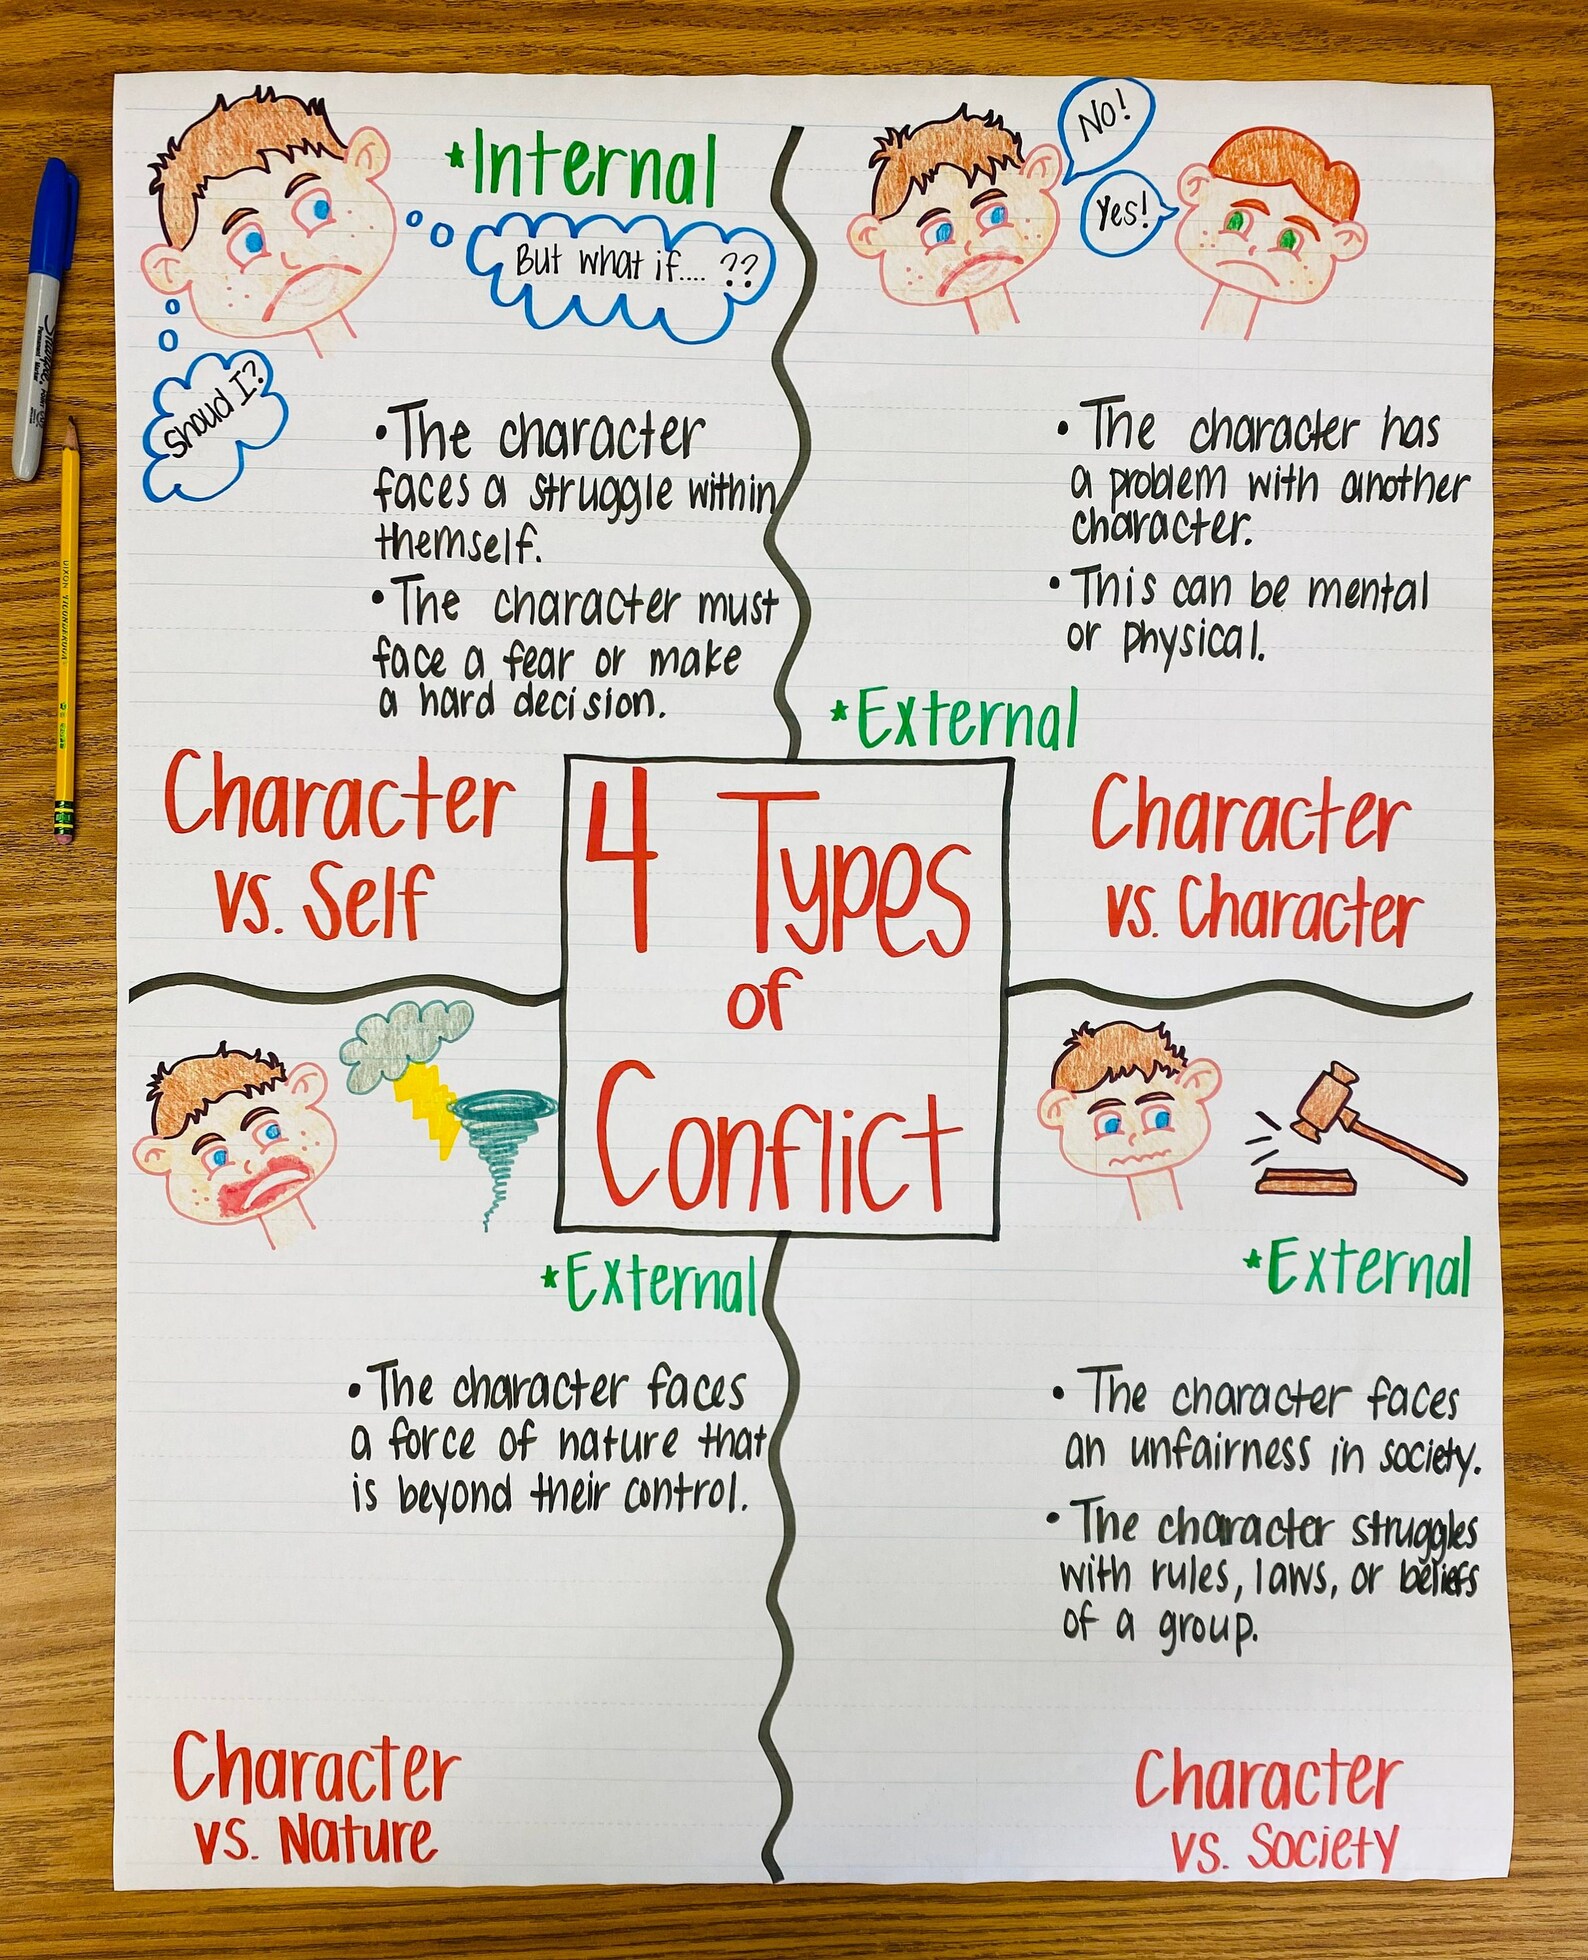 *Internal
But what if.... ??
Shoud I?
•The character
faces a struggle within
themself.
•The character must
face a fear or make
a hard decision.
Character
vs. Self
No!
Yes!
•The character has
a problem with another
character.
•This can be mental
or physical.
*External
Character
vs. Character
4 Types
of
Conflict
*External
•The character faces
a force of nature that
is beyond their control.
Character
vs. Nature
*External
•The character faces
an unfairness in society.
•The character struggles
with rules, laws, or beliefs
of a group.
Character
vs. Society
Sharpie
DIXON TICONDEROGA